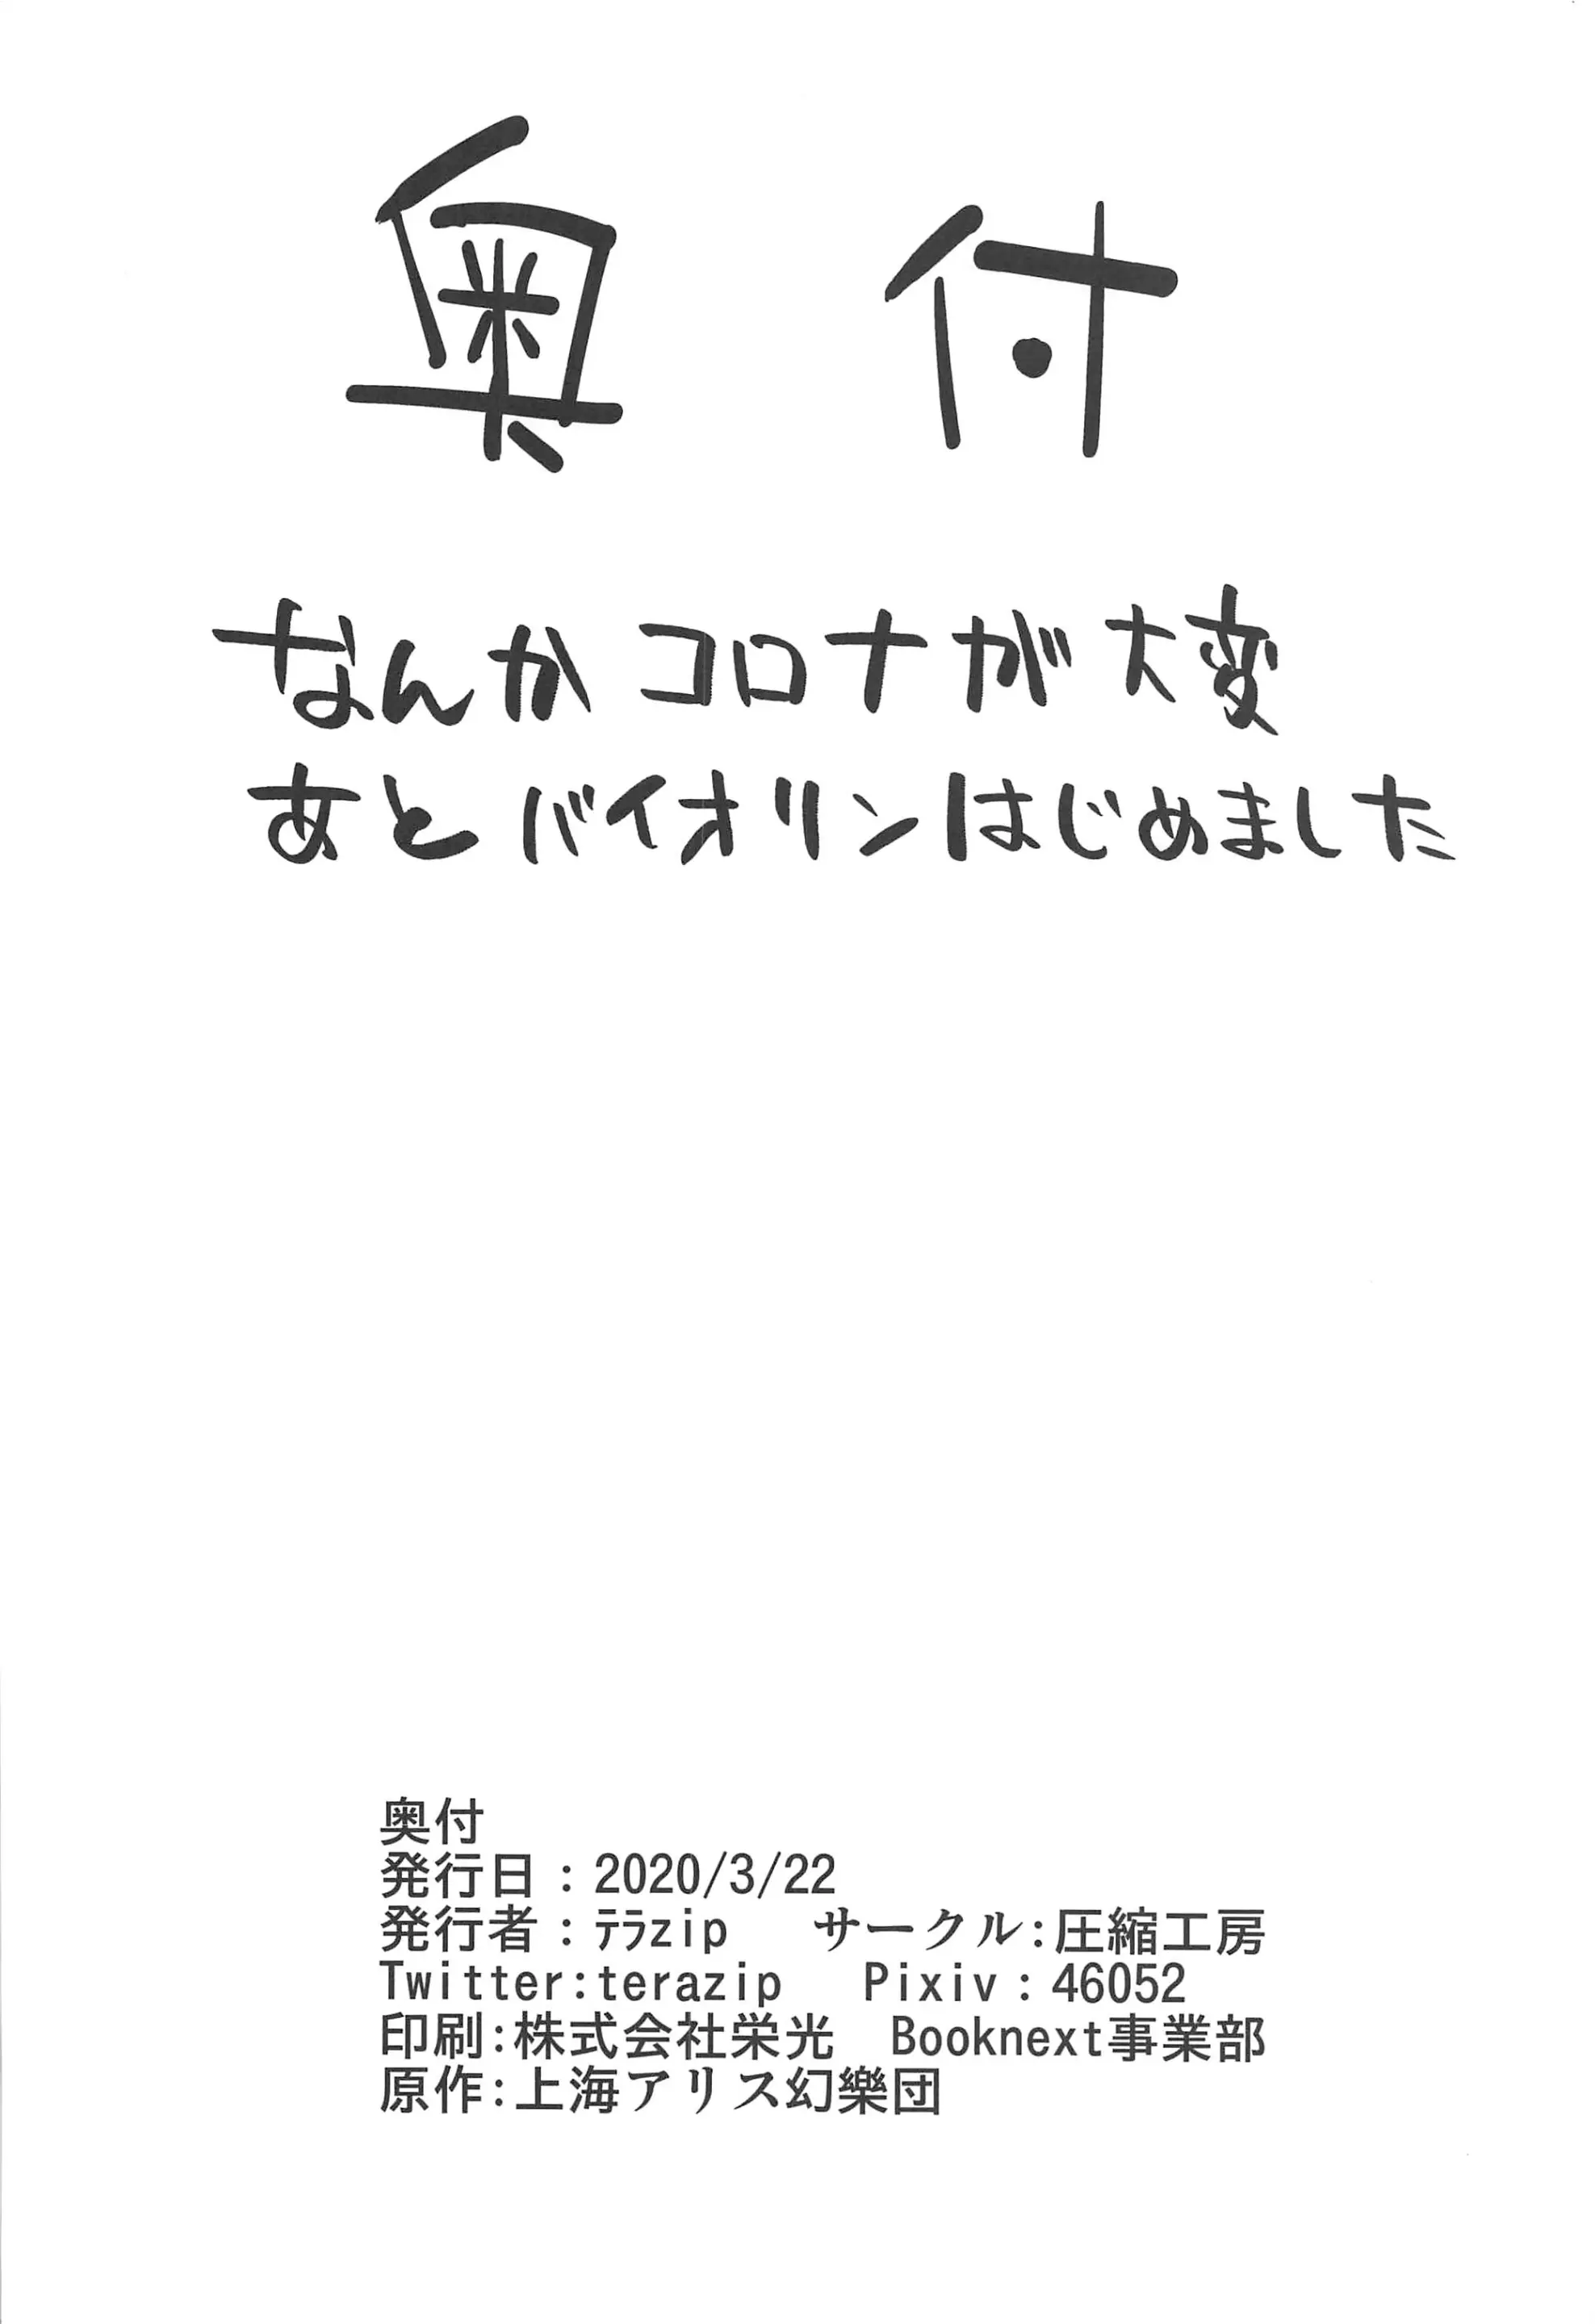 奥付
なんかコロナが大変
あとバイオリンはじめました
奥付
発行日：2020/3/22
発行者：ﾃﾗzip　サークル:圧縮工房
Twitter:terazip　Pixiv：46052
印刷:株式会社栄光　Booknext事業部
原作:上海アリス幻樂団